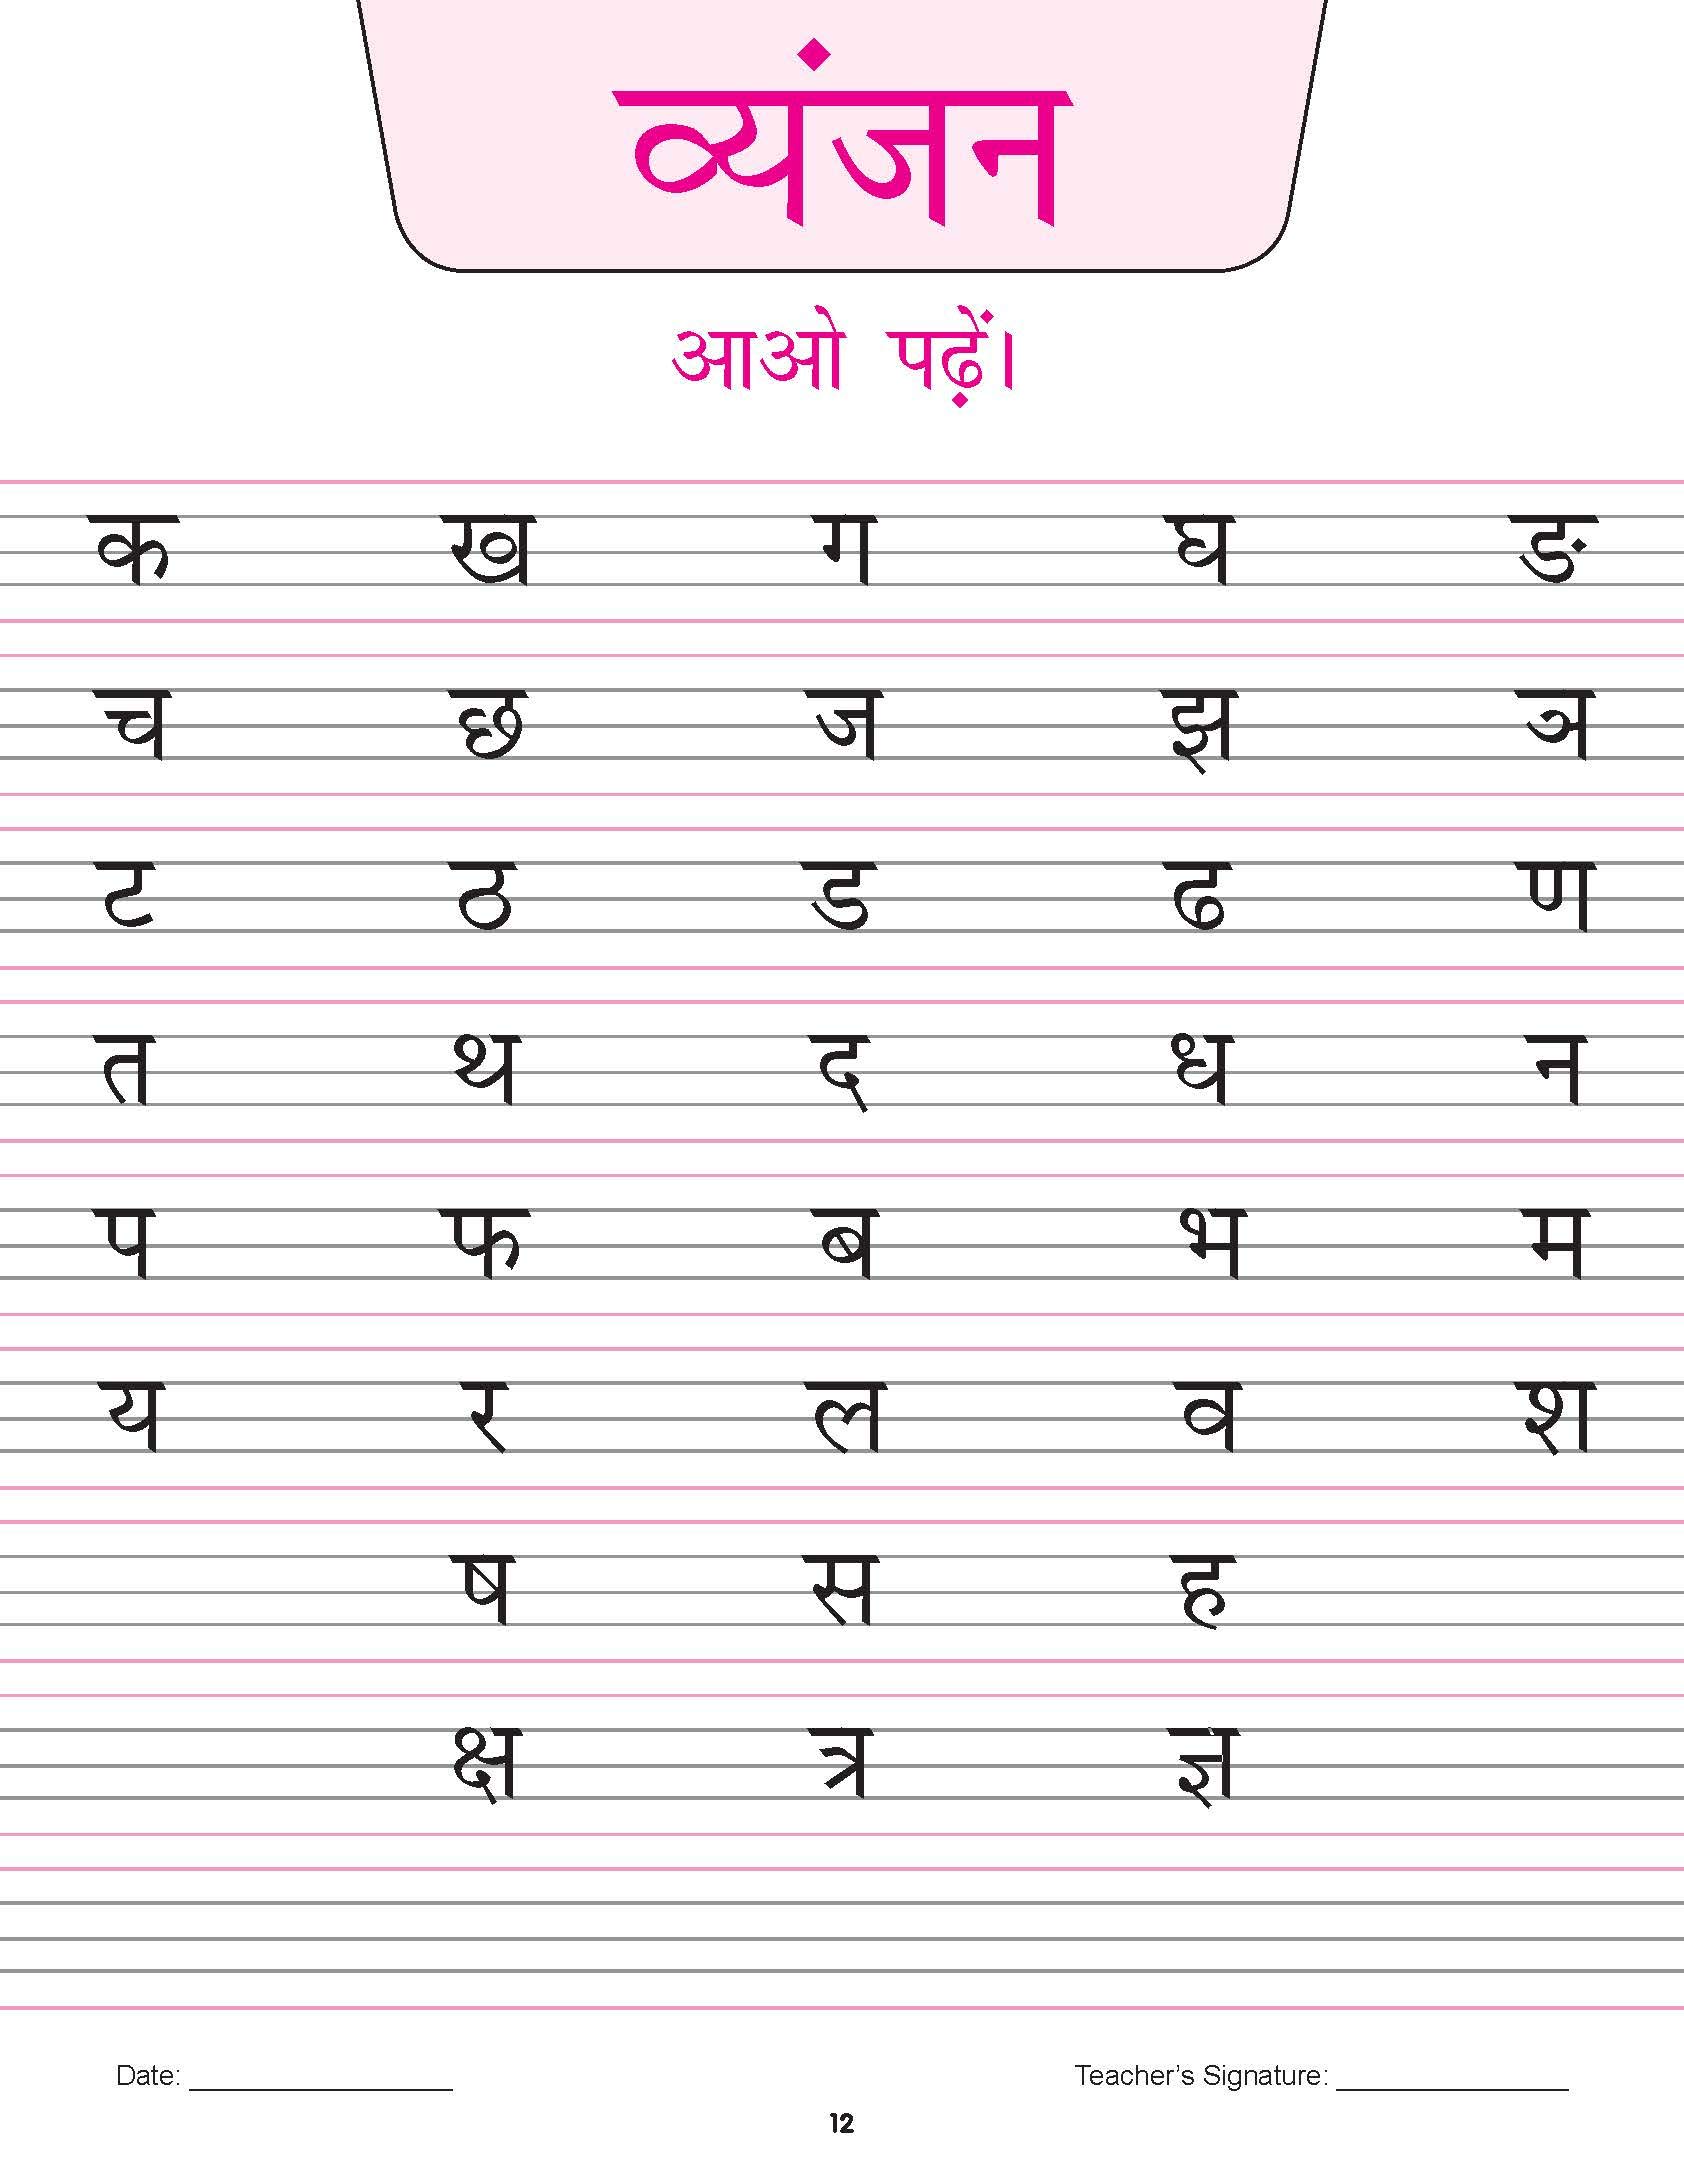 व्यंजन
आओ पढ़ें।
क ख ग घ ङ
च छ ज झ ञ
ट ठ ड ढ ण
त थ द ध न
प फ ब भ म
य र ल व श
ष स ह
क्ष त्र ज्ञ
Date: ________________ Teacher’s Signature: ______________
12